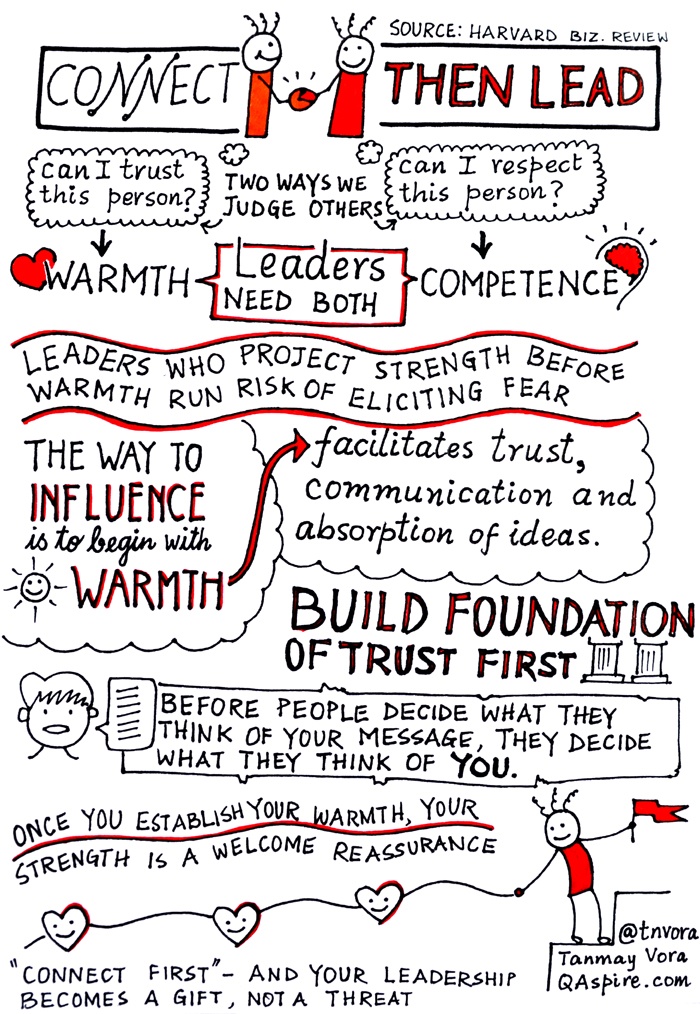 SOURCE: HARVARD BIZ. REVIEW
CONNECT THEN LEAD
can I trust
this person?
TWO WAYS WE
JUDGE OTHERS
can I respect
this person?
WARMTH
Leaders
NEED BOTH
COMPETENCE
LEADERS WHO PROJECT STRENGTH BEFORE
WARMTH RUN RISK OF ELICITING FEAR
THE WAY TO
INFLUENCE
is to begin with
WARMTH
facilitates trust,
communication and
absorption of ideas.
BUILD FOUNDATION
OF TRUST FIRST
BEFORE PEOPLE DECIDE WHAT THEY
THINK OF YOUR MESSAGE, THEY DECIDE
WHAT THEY THINK OF YOU.
ONCE YOU ESTABLISH YOUR WARMTH, YOUR
STRENGTH IS A WELCOME REASSURANCE
"CONNECT FIRST" - AND YOUR LEADERSHIP
BECOMES A GIFT, NOT A THREAT
@tnvora
Tanmay Vora
QAspire.com